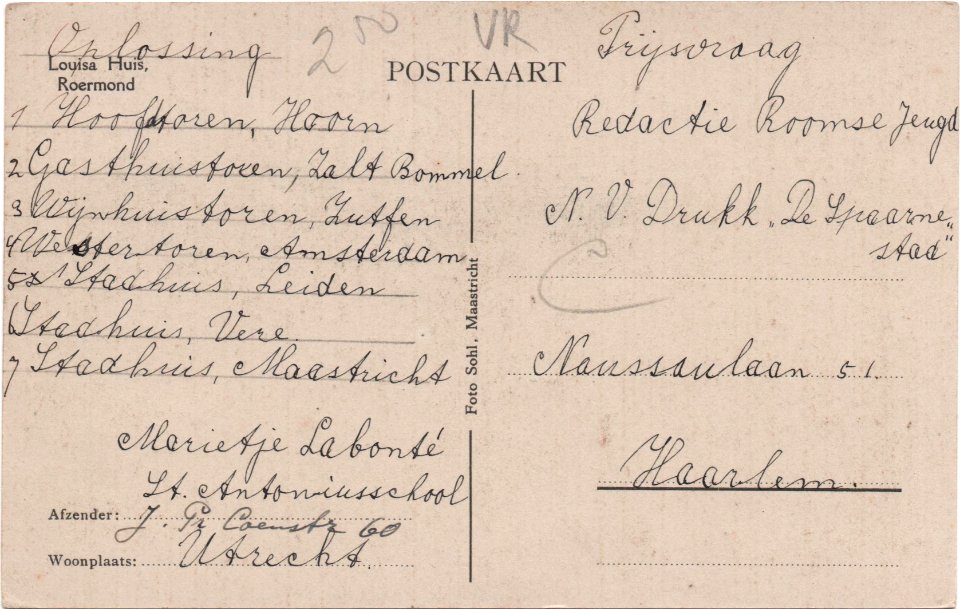 Oplossing
Louisa Huis,
Roermond
1 Hoofdtoren, Hoorn
2 Gasthuistoren, Zalt Bommel.
3 Wijnhuistoren, Zutfen
4 Westertoren, Amsterdam
5 Stadhuis, Leiden
6 Stadhuis, Vere.
7 Stadhuis, Maastricht
Marietje Labonté
St. Antoniusschool
Afzender: J. Pr Coenstr 60
Woonplaats: Utrecht.
200
VR
POSTKAART
Foto Sohl, Maastricht
Prijsvraag
Redactie Roomse Jeugd
N. V. Drukk „De Spaarne„
stad"
Naussaulaan 51.
Haarlem.